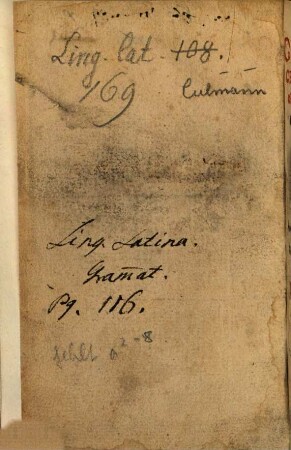 Ling. Lat. 108.
169 Culmann
Ling. Latina.
Gram̄at.
Pg. 116.
fehlt a 2-8